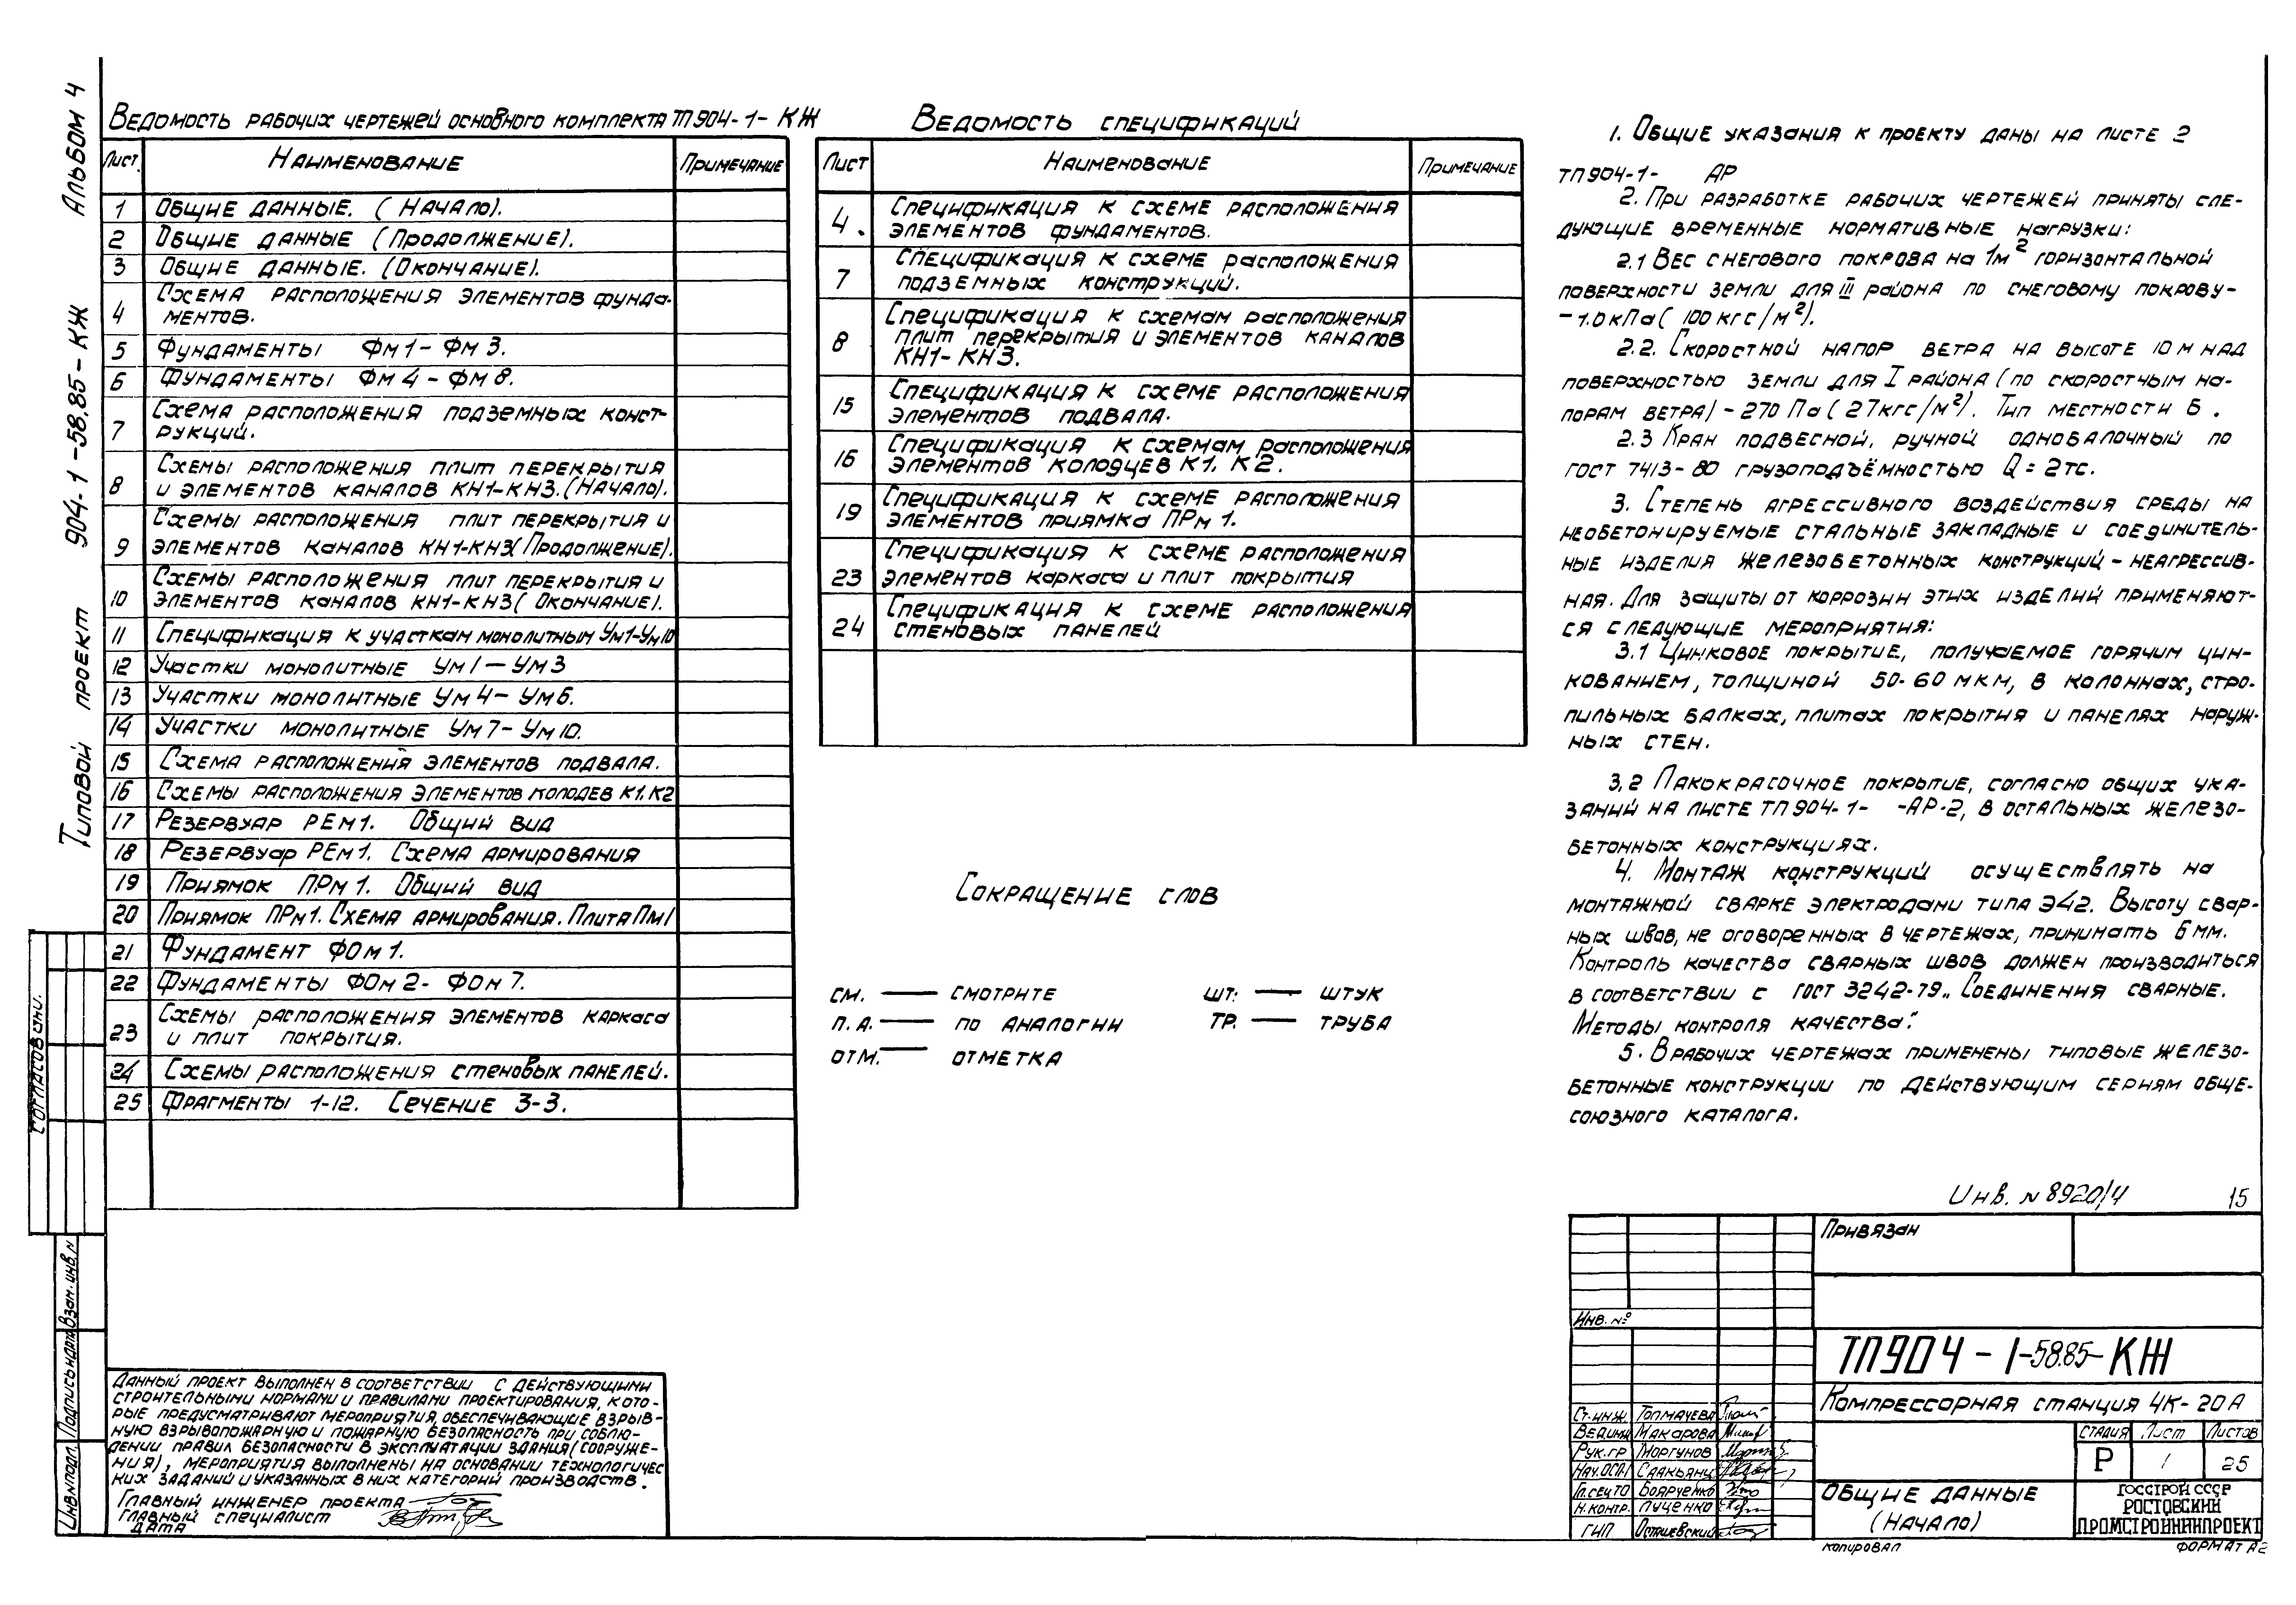 Альбом 4
Типовой проект 904-1-58.85-КЖ
Ведомость рабочих чертежей основного комплекта ТП904-1-КЖ
Лист Наименование Примечание
1 Общие данные. (Начало).
2 Общие данные (Продолжение).
3 Общие данные. (Окончание).
4 Схема расположения элементов фунда-
ментов.
5 Фундаменты Фм1-Фм3.
6 Фундаменты Фм4-Фм8.
7 Схема расположения подземных конст-
рукций.
8 Схемы расположения плит перекрытия
и элементов каналов КН1-КН3.(Начало).
9 Схемы расположения плит перекрытия и
элементов каналов КН1-КН3(Продолжение).
10 Схемы расположения плит перекрытия и
элементов каналов КН1-КН3(Окончание).
11 Спецификация к участкам монолитным Ум1-Ум10
12 Участки монолитные Ум1-Ум3
13 Участки монолитные Ум4-Ум6.
14 Участки монолитные Ум7-Ум10.
15 Схема расположения элементов подвала.
16 Схемы расположения элементов колодцев К1.К2
17 Резервуар РЕм1. Общий вид
18 Резервуар РЕм1. Схема армирования
19 Приямок ПРм1. Общий вид
20 Приямок ПРм1. Схема армирования. Плита Пм1
21 Фундамент ФОм1.
22 Фундаменты ФОм2- ФОм7.
23 Схемы расположения элементов каркаса
и плит покрытия.
24 Схемы расположения стеновых панелей.
25 Фрагменты 1-12. Сечение 3-3.
Ведомость спецификаций
Лист Наименование Примечание
4. Спецификация к схеме расположения
элементов фундаментов.
7 Спецификация к схеме расположения
подземных конструкций.
8 Спецификация к схемам расположения
плит перекрытия и элементов каналов
КН1-КН3.
15 Спецификация к схеме расположения
элементов подвала.
16 Спецификация к схемам расположения
элементов колодцев К1, К2.
19 Спецификация к схеме расположения
элементов приямка ПРм1.
23 Спецификация к схеме расположения
элементов каркаса и плит покрытия
24 Спецификация к схеме расположения
стеновых панелей
Сокращение слов
см. — смотрите шт. — штук
п.а. — по аналогии тр. — труба
отм. — отметка
1. Общие указания к проекту даны на листе 2
ТП904-1- АР
2. При разработке рабочих чертежей приняты сле-
дующие временные нормативные нагрузки:
2.1 Вес снегового покрова на 1м² горизонтальной
поверхности земли для III района по снеговому покрову-
-1.0кПа (100кгс/м²).
2.2. Скоростной напор ветра на высоте 10м над
поверхностью земли для I района (по скоростным на-
порам ветра) - 270 Па (27кгс/м²). Тип местности Б.
2.3 Кран подвесной, ручной однобалочный по
ГОСТ 7413-80 грузоподъёмностью Q = 2тс.
3. Степень агрессивного воздействия среды на
необетонируемые стальные закладные и соединитель-
ные изделия железобетонных конструкций-неагрессив-
ная. Для защиты от коррозии этих изделий применяют-
ся следующие мероприятия:
3.1 Цинковое покрытие, получаемое горячим цин-
кованием, толщиной 50-60 мкм, в колоннах, стро-
пильных балках, плитах покрытия и панелях наруж-
ных стен.
3.2 Лакокрасочное покрытие, согласно общих ука-
заний на листе ТП904-1- -АР-2, в остальных железо-
бетонных конструкциях.
4. Монтаж конструкций осуществлять на
монтажной сварке электродами типа Э42. Высоту свар-
ных швов, не оговоренных в чертежах, принимать 6мм.
Контроль качества сварных швов должен производиться
в соответствии с ГОСТ 3242-79 „Соединения сварные.
Методы контроля качества".
5. В рабочих чертежах применены типовые железо-
бетонные конструкции по действующим сериям обще-
союзного каталога.
Инв. № 8920/4 15
Согласовани.
Взам. инв. №
Подпись и дата
Инв. № подл.
Данный проект выполнен в соответствии с действующими
строительными нормами и правилами проектирования, кото-
рые предусматривают мероприятия, обеспечивающие взрыв-
ную взрывопожарную и пожарную безопасность при соблю-
дении правил безопасности в эксплуатации здания (сооруже-
ния), мероприятия выполнены на основании технологичес
ких заданий и указанных в них категорий производств.
Главный инженер проекта
Главный специалист
Дата
Привязан
Инв. №
ТП904-1-58.85-КЖ
Компрессорная станция 4К-20А
Ст.инж. Толмачева
Вед.инж Макарова
Рук.гр Моргунов
Нач.ОСП-1 Саакьянц
Гл.сп.СТО Боярченко
Н.контр. Луценко
ГИП Осташевский
Стадия Лист Листов
Р 1 25
Общие данные
(Начало)
Госстрой СССР
Ростовский
Промстройниипроект
Копировал Формат А2